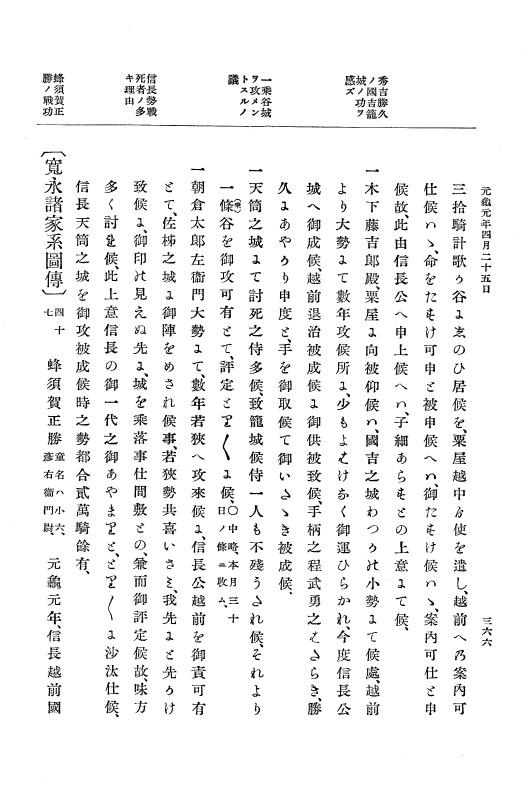 元龜元年四月二十五日
三六六
秀吉勝久
ノ國吉籠
城ノ功ヲ
感ズ
一乘谷城
ヲ攻メン
トスルノ
議
信長勢戰
死者ノ多
キ理由
蜂須賀正
勝ノ戰功
三拾騎計歌う谷よゑのひ居候を、粟屋越中ゟ使を遣し、越前へ乃案内可
仕候ハヽ、命をたもけ可申と被申候へハ、御たもけ候ハヽ、案内可仕と申
候故、此由信長公へ申上候へハ、子細あらもとの上意まて候、
一木下藤吉郎殿、粟屋よ向被仰候ハ、國吉之城わつうれ小勢まて候處、越前
より大勢まて數年攻候所よ、少もよもけなく御運ひらかれ、今度信長公
城へ御成候、越前退治被成候よ御供被致候、手柄之程武勇之もさらき、勝
久よあやうり申度と、手を御取候て御いさゝき被成候、
一天筒之城まて討死之侍多候、致籠城候侍一人も不殘うされ候、それより
一條(乘)谷を御攻可有とて、評定とり〳〵よ候、〇中略、本月三十日ノ條ニ收ム、
一朝倉太郎左衞門大勢まて、數年若狹へ攻來候よ、信長公越前を御責可有
とて、佐柹之城よ御陣をめされ候事、若狹勢共喜いさミ、我先よと先うけ
致候よ、御印れ見えぬ先よ、城を乘落事仕間敷との、兼而御評定候故、味方
多く討を候、此上意信長の御一代之御あやまりと、とり〳〵よ沙汰仕候、
信長天筒之城を御攻被成候時之勢都合貳萬騎餘有、
〔寬永諸家系圖傳〕四十七 蜂須賀正勝童名ハ小六、彥右衞門尉、 元龜元年、信長越前國